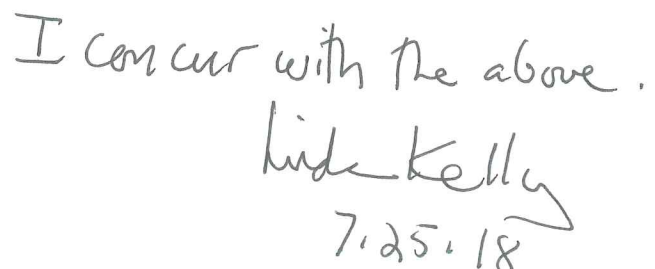 I concur with the above.
Linda Kelly
7.25.18